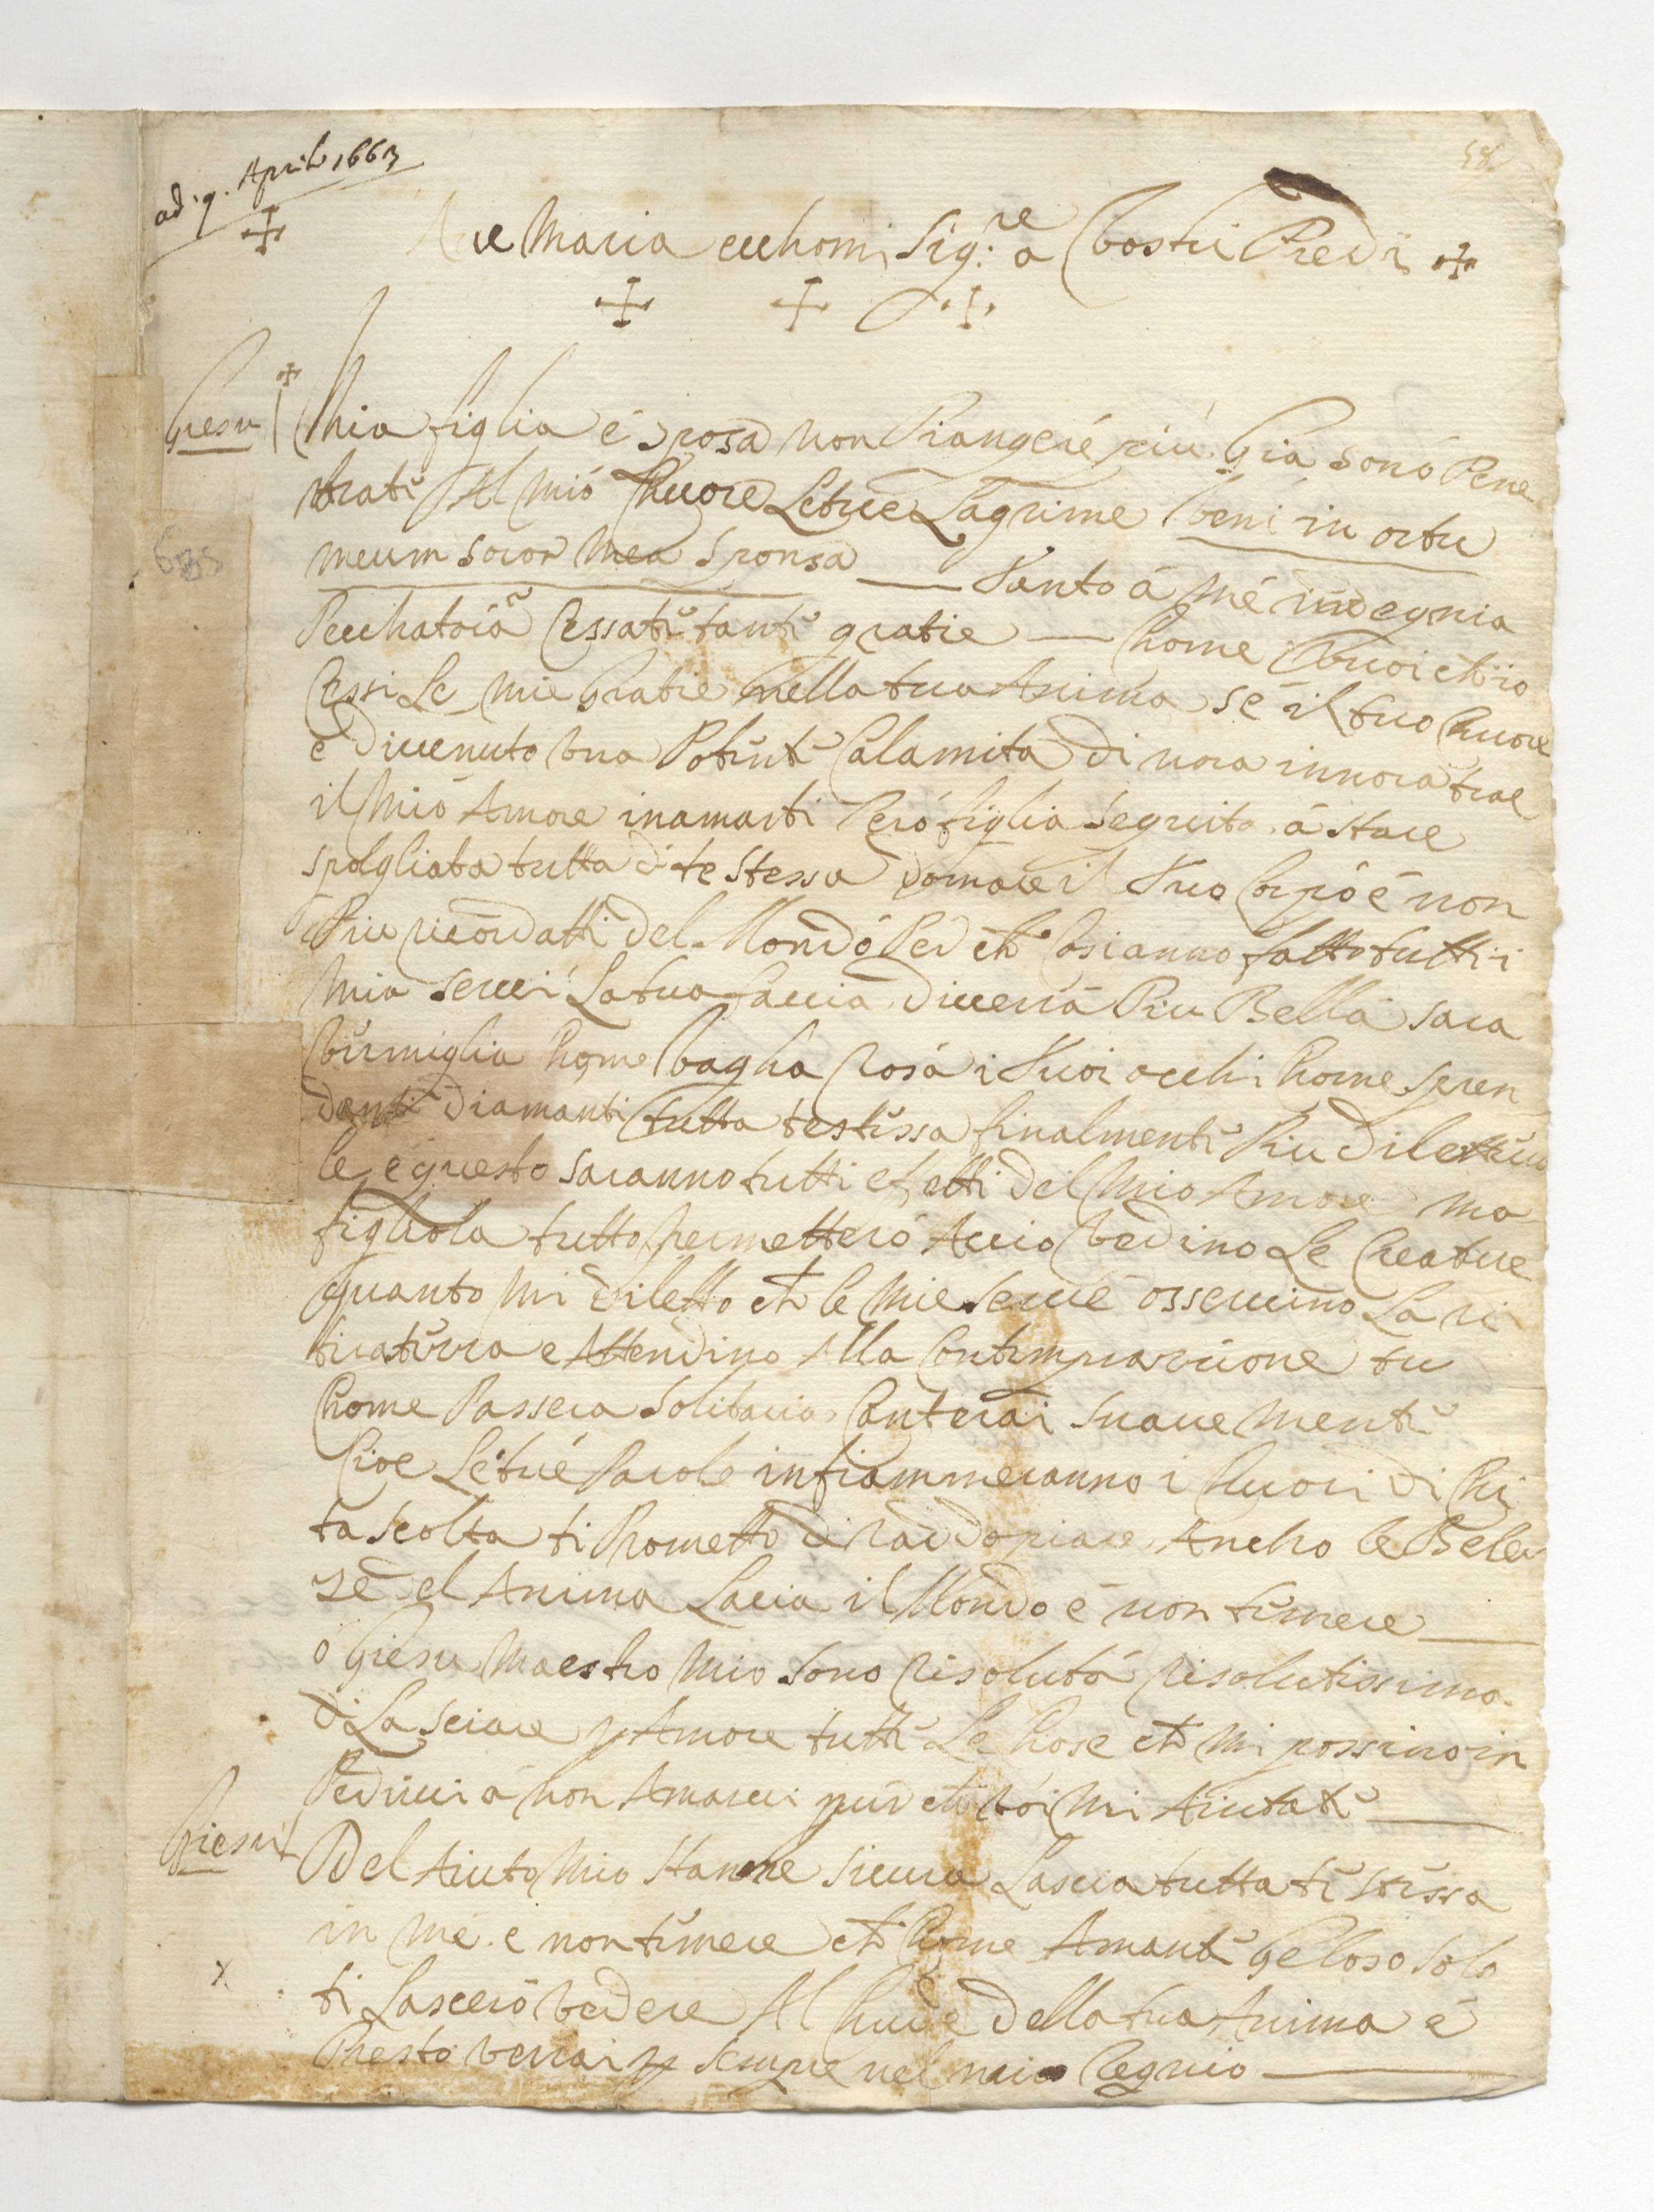 ad: 9. Aprile 1663
58.
Ave Maria ecchomi Sig:re a Vostri Piedi
Giesu
Mia figlia é sposa non Piangeré piú Gia sonó Pene
trati Al mió Chuore Letue Lagrime veni in ortu
meum soror mea sponsa — Tanto á mé indegnia
Pecchatora Cessate tante gratie — Chome Vuoi ch'io
Cessi Le mie Gratie nella tua Anima se il tuo Chuore
e divenuto una Potente Calamita di nora innora trae
il Mió Amore inamarti Peró figlia Seguita á stare
spolgliata tutta di te stessa domare il Tuo Corpó é non
Piu ricordatti del Mondó Per che Cosi anno fatto tutti i
Mia servi La tua faccia diverrá Piu Bella sara
Vermiglia Chome Vagha Rosá i Tuoi occhi Chome spren
denti Diamanti tutta testessa finalmente Piu dilettevo
le e questo saranno tutti effetti del Mio Amore ma
figliola tutto permetteró Accio Vedino Le Creature
quanto Mi diletto che le Mie Serve osservino La ri
tiratezza e Attendino Alla Contemprazione tu
Chome Passera Solitaria Canterai Suavemente
Cioe Le tué Parole infiammeranno i Chuori di Chi
tascolta ti Prometto di raddopiare Ancho le Belez
ze del Anima Lacia il Mondo é non temere —
o Giesu Maestro Mio Sono Risolutá Risolutissima
di Lasciare p Amore tutte Le Chose che Mi possino in
Pedirci á non Amarvi pur che Voi Mi Aiutate —
Giesu
Del Aiuto Mio Stanne Sicura Lascia tutta te stessa
in Me e non temere che Chome Amante Geloso Solo
ti Lasceró vedere Al Chuore della tua Anima é
Presto verrai p sempre nel mio Regnio —